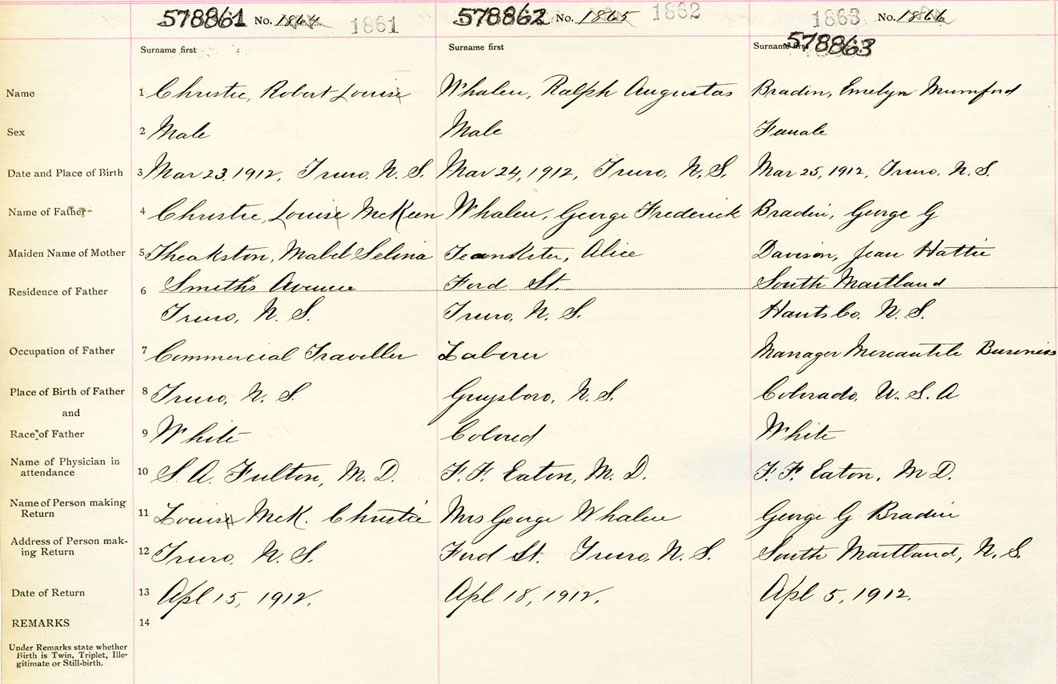 578861 No. 1864 1861 578862 No. 1865 1862 1863 No. 1866
Surname first Surname first Surname first 578863
Name 1 Christie, Robert Louis Whalen, Ralph Augustas Bradin, Emelyn Mumford
Sex 2 Male Male Female
Date and Place of Birth 3 Mar 23, 1912, Truro, N.S. Mar 24, 1912, Truro, N.S. Mar 25, 1912, Truro, N.S.
Name of Father 4 Christie, Louis McKeen Whalen, George Frederick Bradin, George G
Maiden Name of Mother 5 Theakston, Mabel Selina Alice Davison, Jean Hattie
Residence of Father 6 Smith's Avenue Ford St. South Maitland
Truro, N.S. Truro, N.S. Hants Co, N.S.
Occupation of Father 7 Commercial Traveller Laborer Manager Mercantile Business
Place of Birth of Father 8 Truro, N.S. Guysboro, N.S. Colorado, U.S.A
and
Race of Father 9 White Colored White
Name of Physician in
attendance 10 S.A. Fulton, M.D. F.F. Eaton, M.D. F.F. Eaton, M D.
Name of Person making
Return 11 Louis McK. Christie Mrs George Whalen George G Bradin
Address of Person mak-
ing Return 12 Truro, N.S. Ford St. Truro, N.S. South Maitland, N.S.
Date of Return 13 Apl 15, 1912. Apl 18, 1912. Apl 5, 1912.
REMARKS 14
Under Remarks state whether
Birth is Twin, Triplet, Ille-
gitimate or Still-birth.